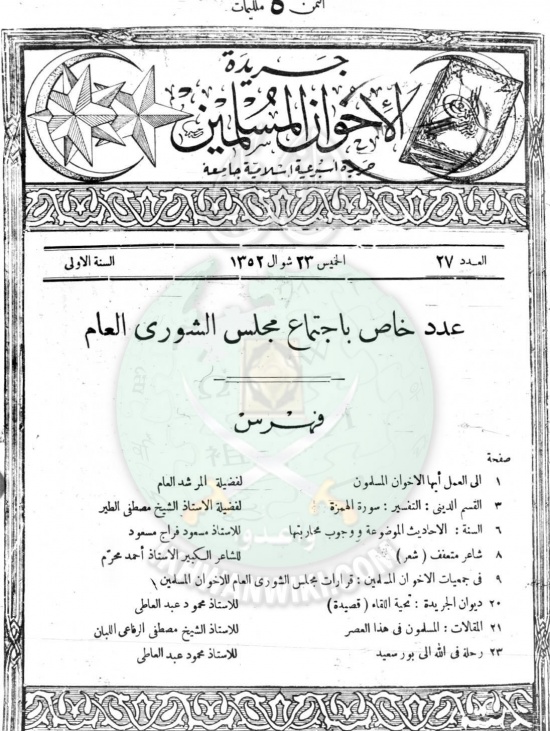 الثمن ٥ مليمات
جريدة
الاخوان المسلمين
جريدة اسبوعية اسلامية جامعة
العدد ٢٧ الخميس ٢٣ شوال ١٣٥٢ السنة الاولى
عدد خاص باجتماع مجلس الشورى العام
فهرس
صفحة
١ الى العمل أيها الاخوان المسلمون لفضيلة المرشد العام
٣ القسم الدينى : التفسير : سورة الهمزة لفضيلة الاستاذ الشيخ مصطفى الطير
٦ السنة : الاحاديث الموضوعة ووجوب محاربتها للاستاذ مسعود فراج مسعود
٨ شاعر متعفف ( شعر ) للشاعر الكبير الاستاذ أحمد محرم
٩ فى جمعيات الاخوان المسلمين : قرارات مجلس الشورى العام للاخوان المسلمين
٢٠ ديوان الجريدة : تحية اللقاء ( قصيدة ) للاستاذ محمود عبد العاطى
٢١ المقالات : المسلمون فى هذا العصر للاستاذ الشيخ مصطفى الرفاعى اللبان
٢٣ رحلة فى الله الى بور سعيد للاستاذ محمود عبد العاطى